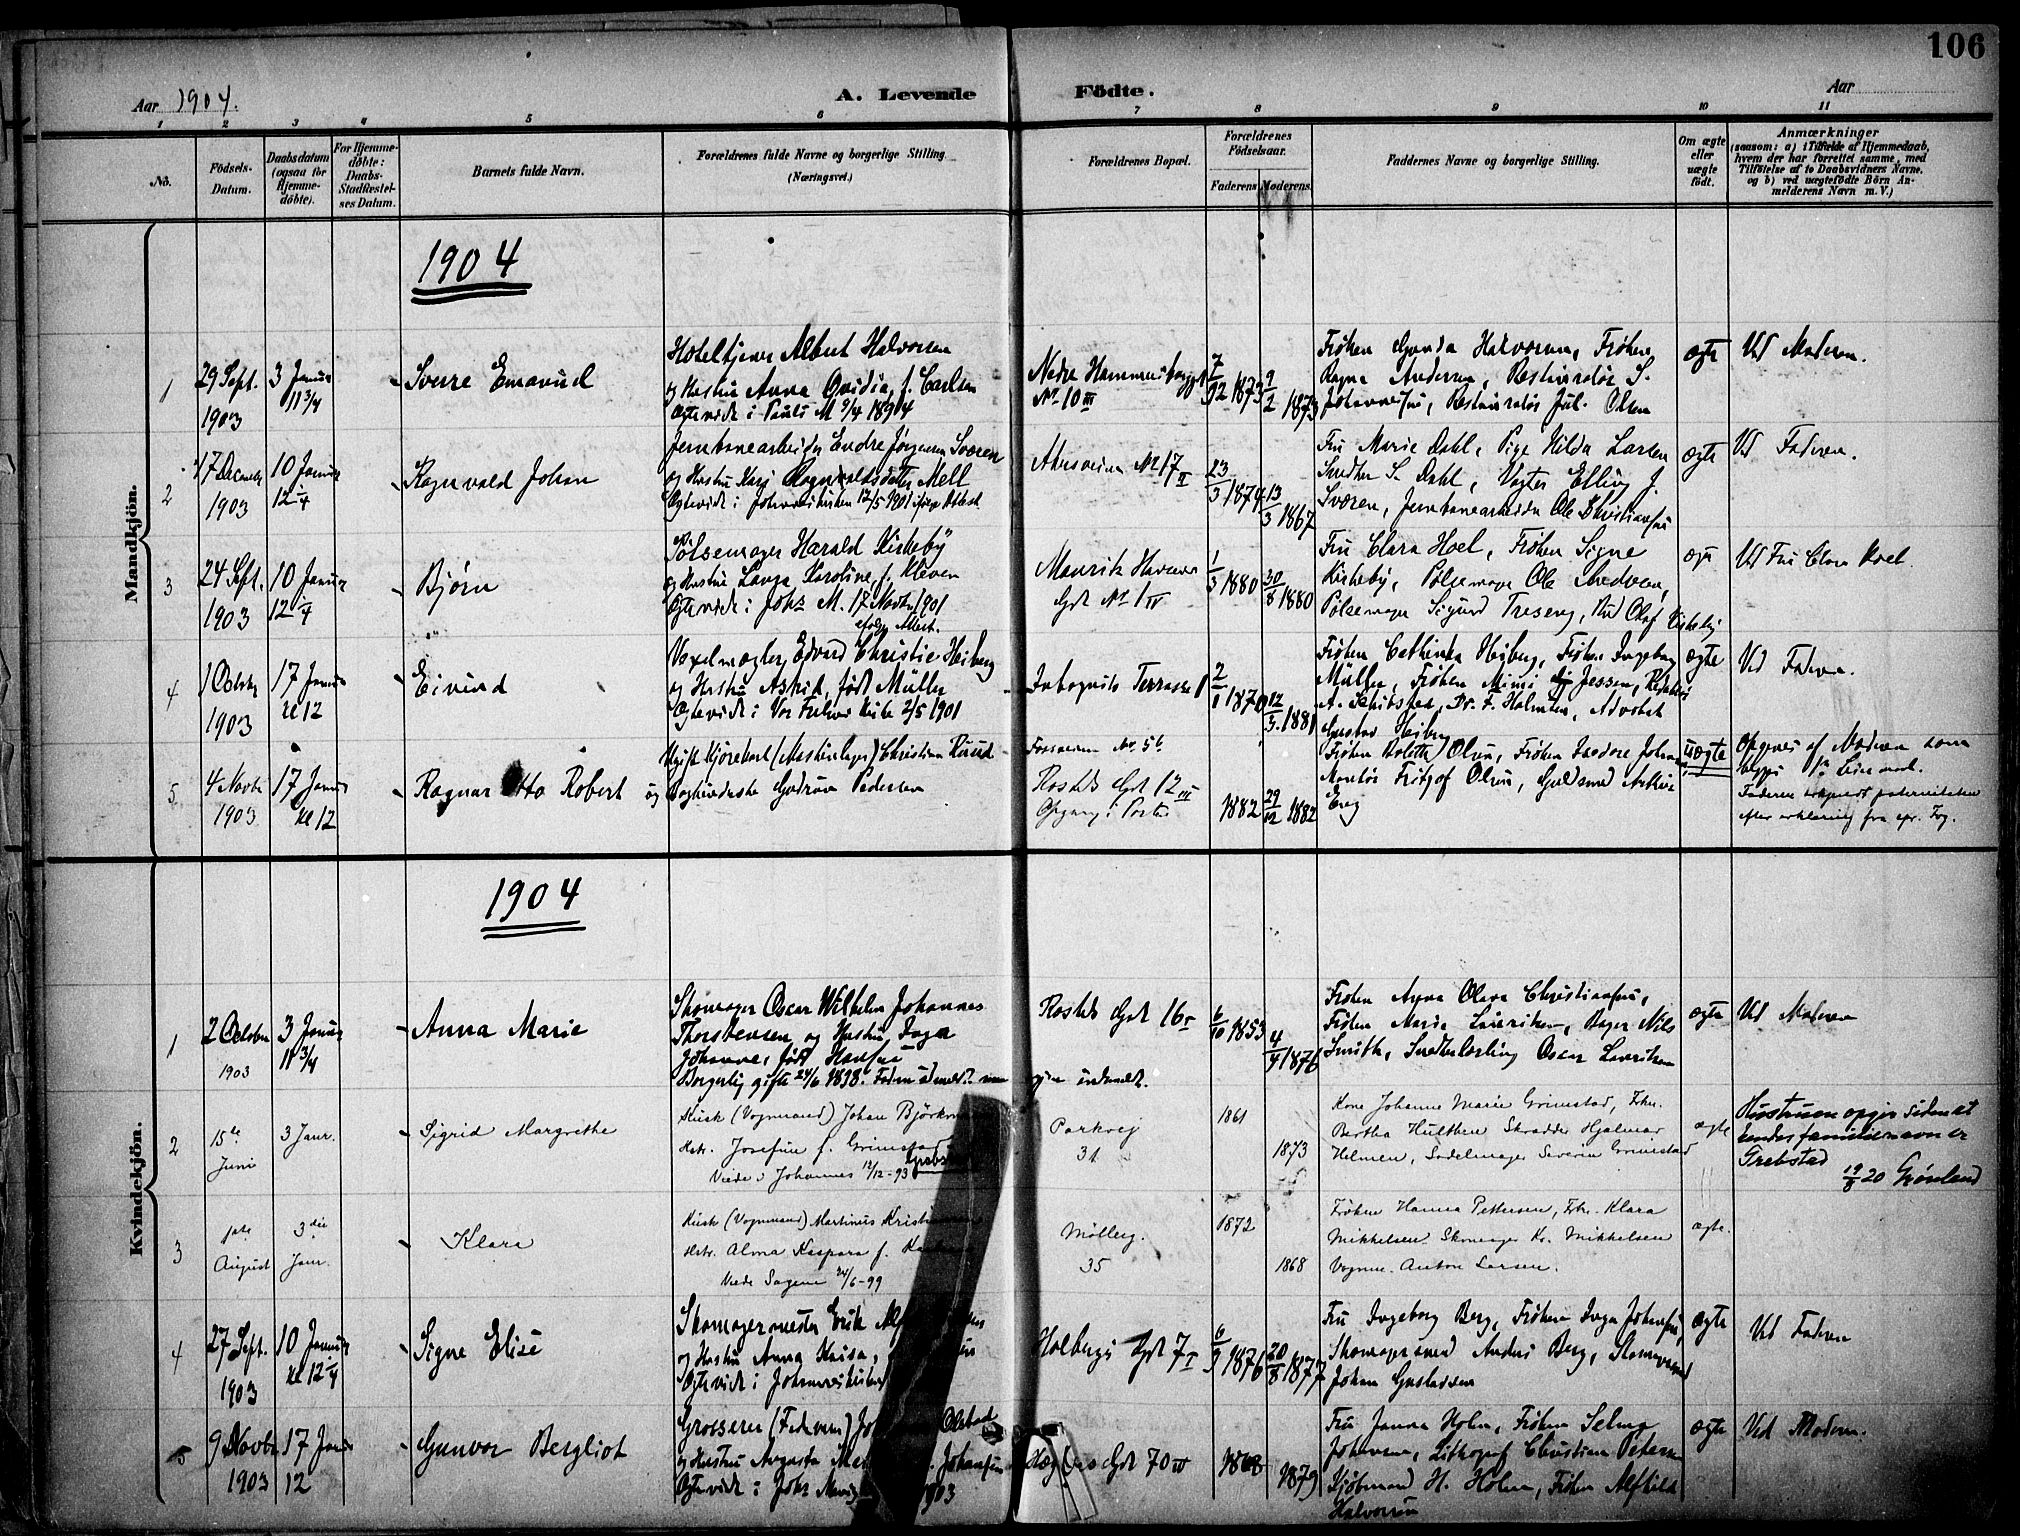 106
Aar 1904.
A. Levende Födte.
Aar
1 2 3 4 5 6 7 8 9 10 11
No.
Födsels-Datum.
Daabsdatum (ogsaa for Hjemme-döbte).
For Hjemme-döbte: Daabs-Stadfæstel-ses Datum.
Barnets fulde Navn.
Forældrenes fulde Navne og borgerlige Stilling. (Næringsvei.)
Forældrenes Bopæl.
Forældrenes Födselsaar.
Faderens. Moderens.
Faddernes Navne og borgerlige Stilling.
Om ægte eller uægte födt.
Anmærkninger
(saasom: a) i Tilfælde af Hjemmedaab,
hvem der har forrettet samme, med
Tilföielse af to Daabsvidners Navne,
og b) ved uægtefödte Börn An-
melderens Navn m. V.)
Mandkjön.
1904
1
29 Sept. 1903
3 Januar 11 3/4
Sverre Emanuel
Hoteltjener Albert Halvorsen
og Hustru Anna Ovidia, f. Carlsen
Ægteviede i Pauls M 9/4 1894
Nedre
No 10 III
1873
9/2 1873
Frøken Gunda Halvorsen, Frøken
Ragna Andersen, Restauratør S.
Johannesen, Restauratør Jul. Olsen
ægte
Ved Moderen.
2
17 December 1903
10 Januar 12 1/4
Ragnvald Johan
Jernbanearbeider Endre Jørgensen Sværen
og Hustru Kari Ragnvaldsdatter Mell
Ægteviede i Johanneskirken 12/5 1901 ifølge Attest
Akersveien No 17 II
23/3 1874
13/3 1867
Fru Marie Dahl, Pige Hilda Larsen
Snedker S. Dahl, Vogter Elling J.
Sværen, Jernbanearbeider Ole Christiansen
ægte
Ved Faderen.
3
24 Sept. 1903
10 Januar 12 1/4
Bjørn
Pølsemager Harald Kirkeby
og Hustru Laura Karoline, f. Kleven
Ægteviede i Johs M. 17 Novbr 1901
ifølge Attest.
Mauritz Hansens
Gdt No 1 IV
1/3 1880
30/8 1880
Fru Clara Hoel, Frøken Signe
Kirkeby, Pølsemager Ole
Pølsemager Sigurd Treseng, Stud Olaf Kirkeby
ægte
Ved Fru Clara Hoel.
4
1 Octobr 1903
17 Januar kl 12
Eivind
Vexelmægler Edvard Christie Heiberg
og Hustru Astrid, født Müller
Ægteviede i Vor Frelser Kirke 2/5 1901
Incognito Terrasse 1
2/1 1870
12/3 1881
Frøken Cathinka Heiberg, Frøken Ingeborg
Müller, Frøken Mimi Jessen, Redaktør
A. Schibsted, Dr. F. Holmsen, Advokat
Gustav Heiberg
ægte
Ved Faderen.
5
4 Novbr 1903
17 Januar kl 12
Ragnar Otto Robert
Ugift Kjørekarl Christian Ruud
og Gudrun Pedersen
Fossveien No 5 b
Rosteds Gdt 12 III
Opgang i Porten
1882
29/12 1882
Frøken Olsen, Frøken Isidore
Fritjof Olsen, Guldsmed Arthur
Eng
uægte
Opgives af Moderen som
Faderen erkjendt paterniteten
efter erklæring fra
Kvindekjön.
1904
1
2 October 1903
3 Januar 11 3/4
Anna Marie
Skomager Oscar Wilhelm Johannes
Thorstensen og Hustru Inga
Johanne, født Hansen
Borgerlig gifte 24/6 1898. Faden udmeldt men igjen indmeldt.
Rosteds Gdt 16 I
6/10 1853
4/4 1876
Frøken Anna Olava Christiansen,
Frøken Marie Lauritzen, Bager Nils
Smith, Snedkerlærling Oscar Lauritzen
ægte
Ved Moderen
2
15de Juni
3 Janr.
Sigrid Margrethe
Kusk (Vognmand) Johan
Hstr. Josefine f. Grimstad
Grebstad
Viede i Johannes 12/12-93
Parkvej
31.
1861
1873
Kone Johanne Marie Grimstad, Frkn.
Bertha Hulthen Skrædder Hjalmar
Helmen, Sadelmager Severin Grimstad
ægte
Hustruen opgir siden at
hendes familienavn er
Grebstad
19/8 20 Grønland
3
1ste August
3die Janr.
Klara
Kusk (Vognmand) Martinus
Hstr. Alma Kaspara f.
Viede Sagene 24/6-99
Møllerg.
35
1872
1868
Frøken Hanna Pettersen, Frk. Klara
Mikkelsen Skomager Kr. Mikkelsen
Vognm. Anton Larsen.
ægte.
4
27 Sept. 1903
10 Januar kl 12 1/4
Signe Elise
Skomagermester Erik
og Hustru Anna
Ægteviede i
Holbergs Gdt 7 I
6/9 1876
20/8 1877
Fru Ingeborg Berg, Frøken Inga Johansen,
Skomagersvend Anders Berg,
Johan Gustavsen
ægte
Ved Faderen
5
9 Novbr 1903
17 Januar 12
Gunvor Bergliot
Grosserer
og Hustru Augusta Johansen
Ægteviede i Johs 1903
Gdt 70 III
1868
1879
Fru Janna Holm, Frøken Selma
Johansen, Lithograf Christian Petersen
Kjøbmand H. Holm, Frøken Alfhild
Halvorsen
ægte
Ved Moderen.